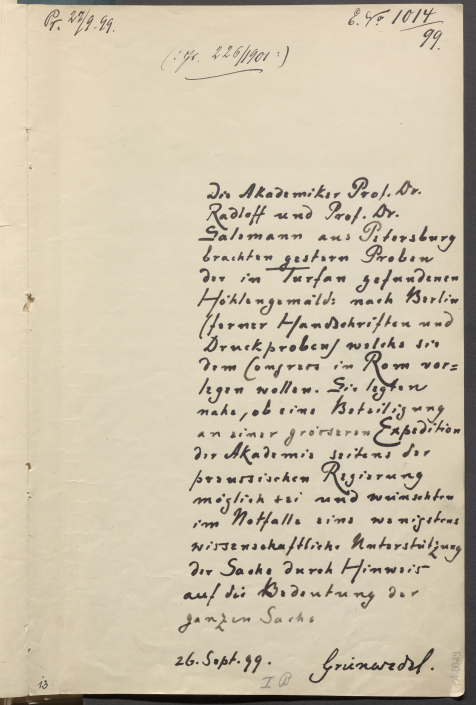 Pr. 27/9. 99.
E. No 1014/99.
(: 226/1901 :)
Die Akademiker Prof. Dr.
Radloff und Prof. Dr.
Salemann aus Petersburg
brachten gestern Proben
der in Turfan gefundenen
Höhlengemälde nach Berlin
(ferner Handschriften und
Druckproben) welche sie
dem Congress in Rom vor=
legen wollen. Sie legten
nahe, ob eine Beteiligung
an einer grösseren Expedition
der Akademie seitens der
preussischen Regierung
möglich sei und wünschten
im Notfalle eine wenigstens
wissenschaftliche Unterstützung
der Sache durch Hinweis
auf die Bedeutung der
ganzen Sache
26. Sept. 99. Grünwedel.
I B
13